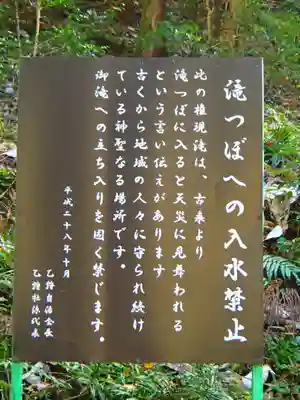 滝つぼへの入水禁止
此の権現滝は、古来より
滝つぼに入ると天災に見舞われる
という言い伝えがあります
古くから地域の人々に守られ続け
ている神聖なる場所です。
御滝への立ち入りを固く禁じます。
平成二十八年十月
乙幡自治会長
乙幡社総代表